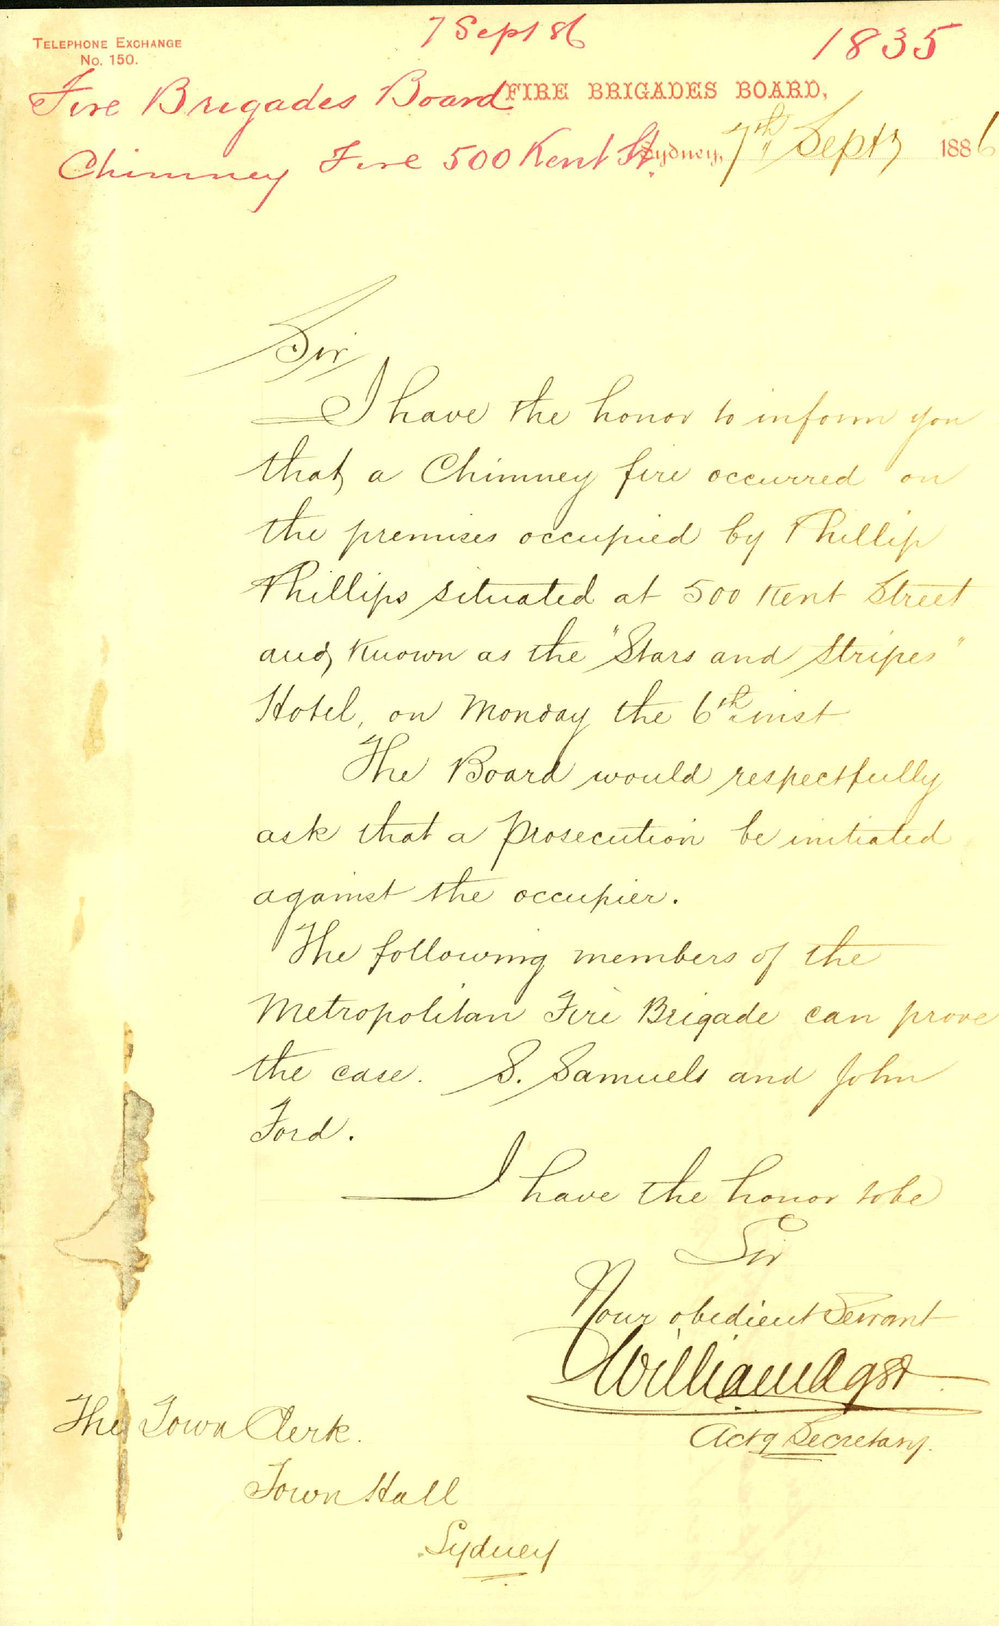 7 Sept 86
1835
TELEPHONE EXCHANGE
No. 150.
Fire Brigades Board
FIRE BRIGADES BOARD,
Chimney Fire 500 Kent St.
Sydney, 7th Sept 1886
Sir
I have the honor to inform you
that a Chimney fire occurred on
the premises occupied by Phillip
Phillips situated at 500 Kent Street
and known as the "Stars and Stripes"
Hotel, on Monday the 6th inst
The Board would respectfully
ask that a prosecution be initiated
against the occupier.
The following members of the
Metropolitan Fire Brigade can prove
the case. S. Samuels and John
Ford.
I have the honor to be
Sir
Your obedient Servant
William
Actg Secretary.
The Town Clerk.
Town Hall
Sydney